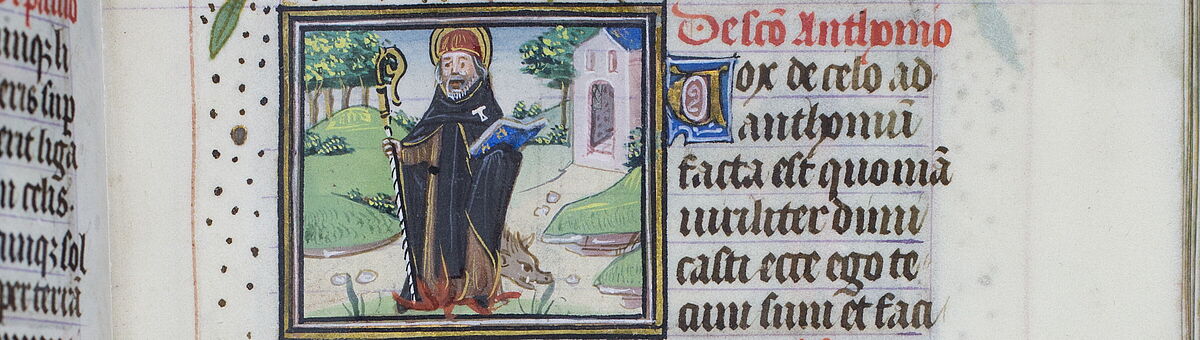 unq̃ li
eris sup
ent liga
n celis.
unq̃ sol
per terrā
De scō Anthonio
Vox de celo ad
anthoniū
facta est quoniā
uiriliter dimi
casti ecce ego te
cum sum et faci